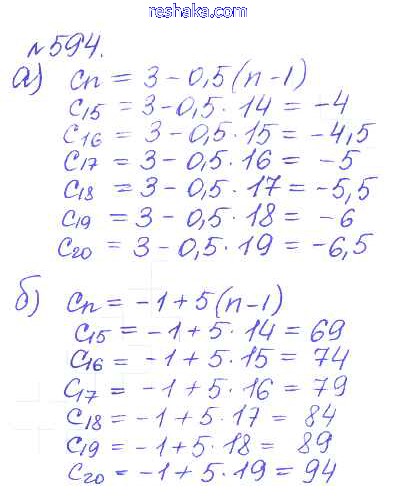 reshaka.com
№594.
а) Cn = 3 - 0,5(n-1)
C15 = 3 - 0,5 · 14 = -4
C16 = 3 - 0,5 · 15 = -4,5
C17 = 3 - 0,5 · 16 = -5
C18 = 3 - 0,5 · 17 = -5,5
C19 = 3 - 0,5 · 18 = -6
C20 = 3 - 0,5 · 19 = -6,5
б) Cn = -1 + 5(n-1)
C15 = -1 + 5 · 14 = 69
C16 = -1 + 5 · 15 = 74
C17 = -1 + 5 · 16 = 79
C18 = -1 + 5 · 17 = 84
C19 = -1 + 5 · 18 = 89
C20 = -1 + 5 · 19 = 94